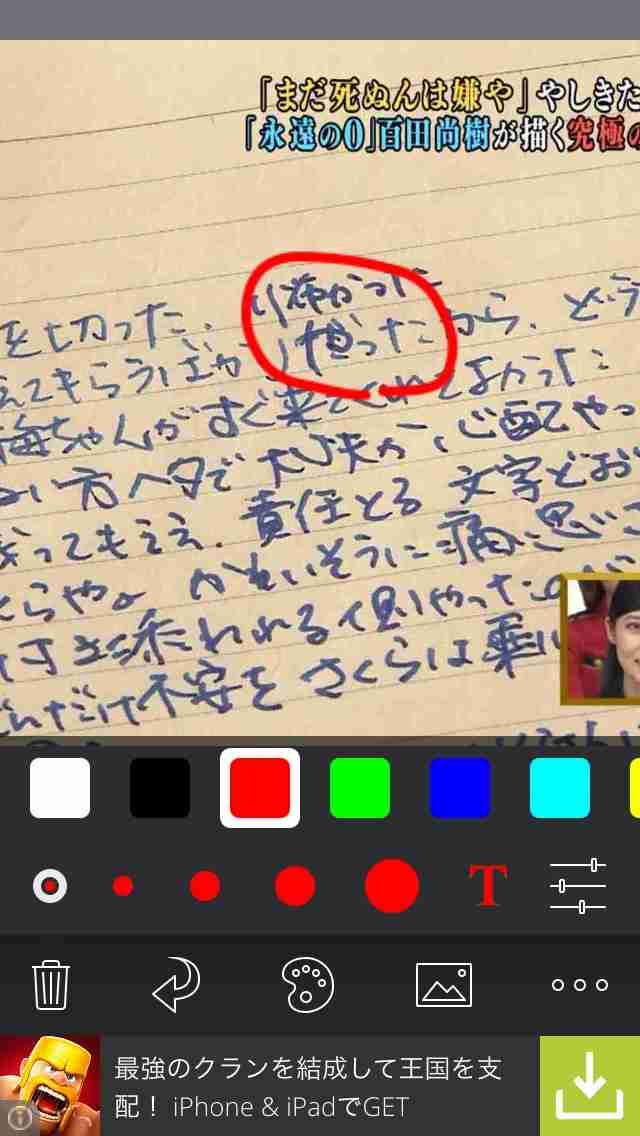 「まだ死ぬんは嫌や」やしきた
「永遠の0」百田尚樹が描く究極の
を切った. 怖かった
えてもらうばか 想ったから、どう
梅ちゃんがすぐ来てくれてよかった
い方ヘタで大丈夫か心配やっ
ってもええ. 責任とる 文字どお
とらやよ かわいそうに痛い思い
付き添われる側やった
だけ不安をさくらは乗り
T
最強のクランを結成して王国を支
配！ iPhone & iPadでGET